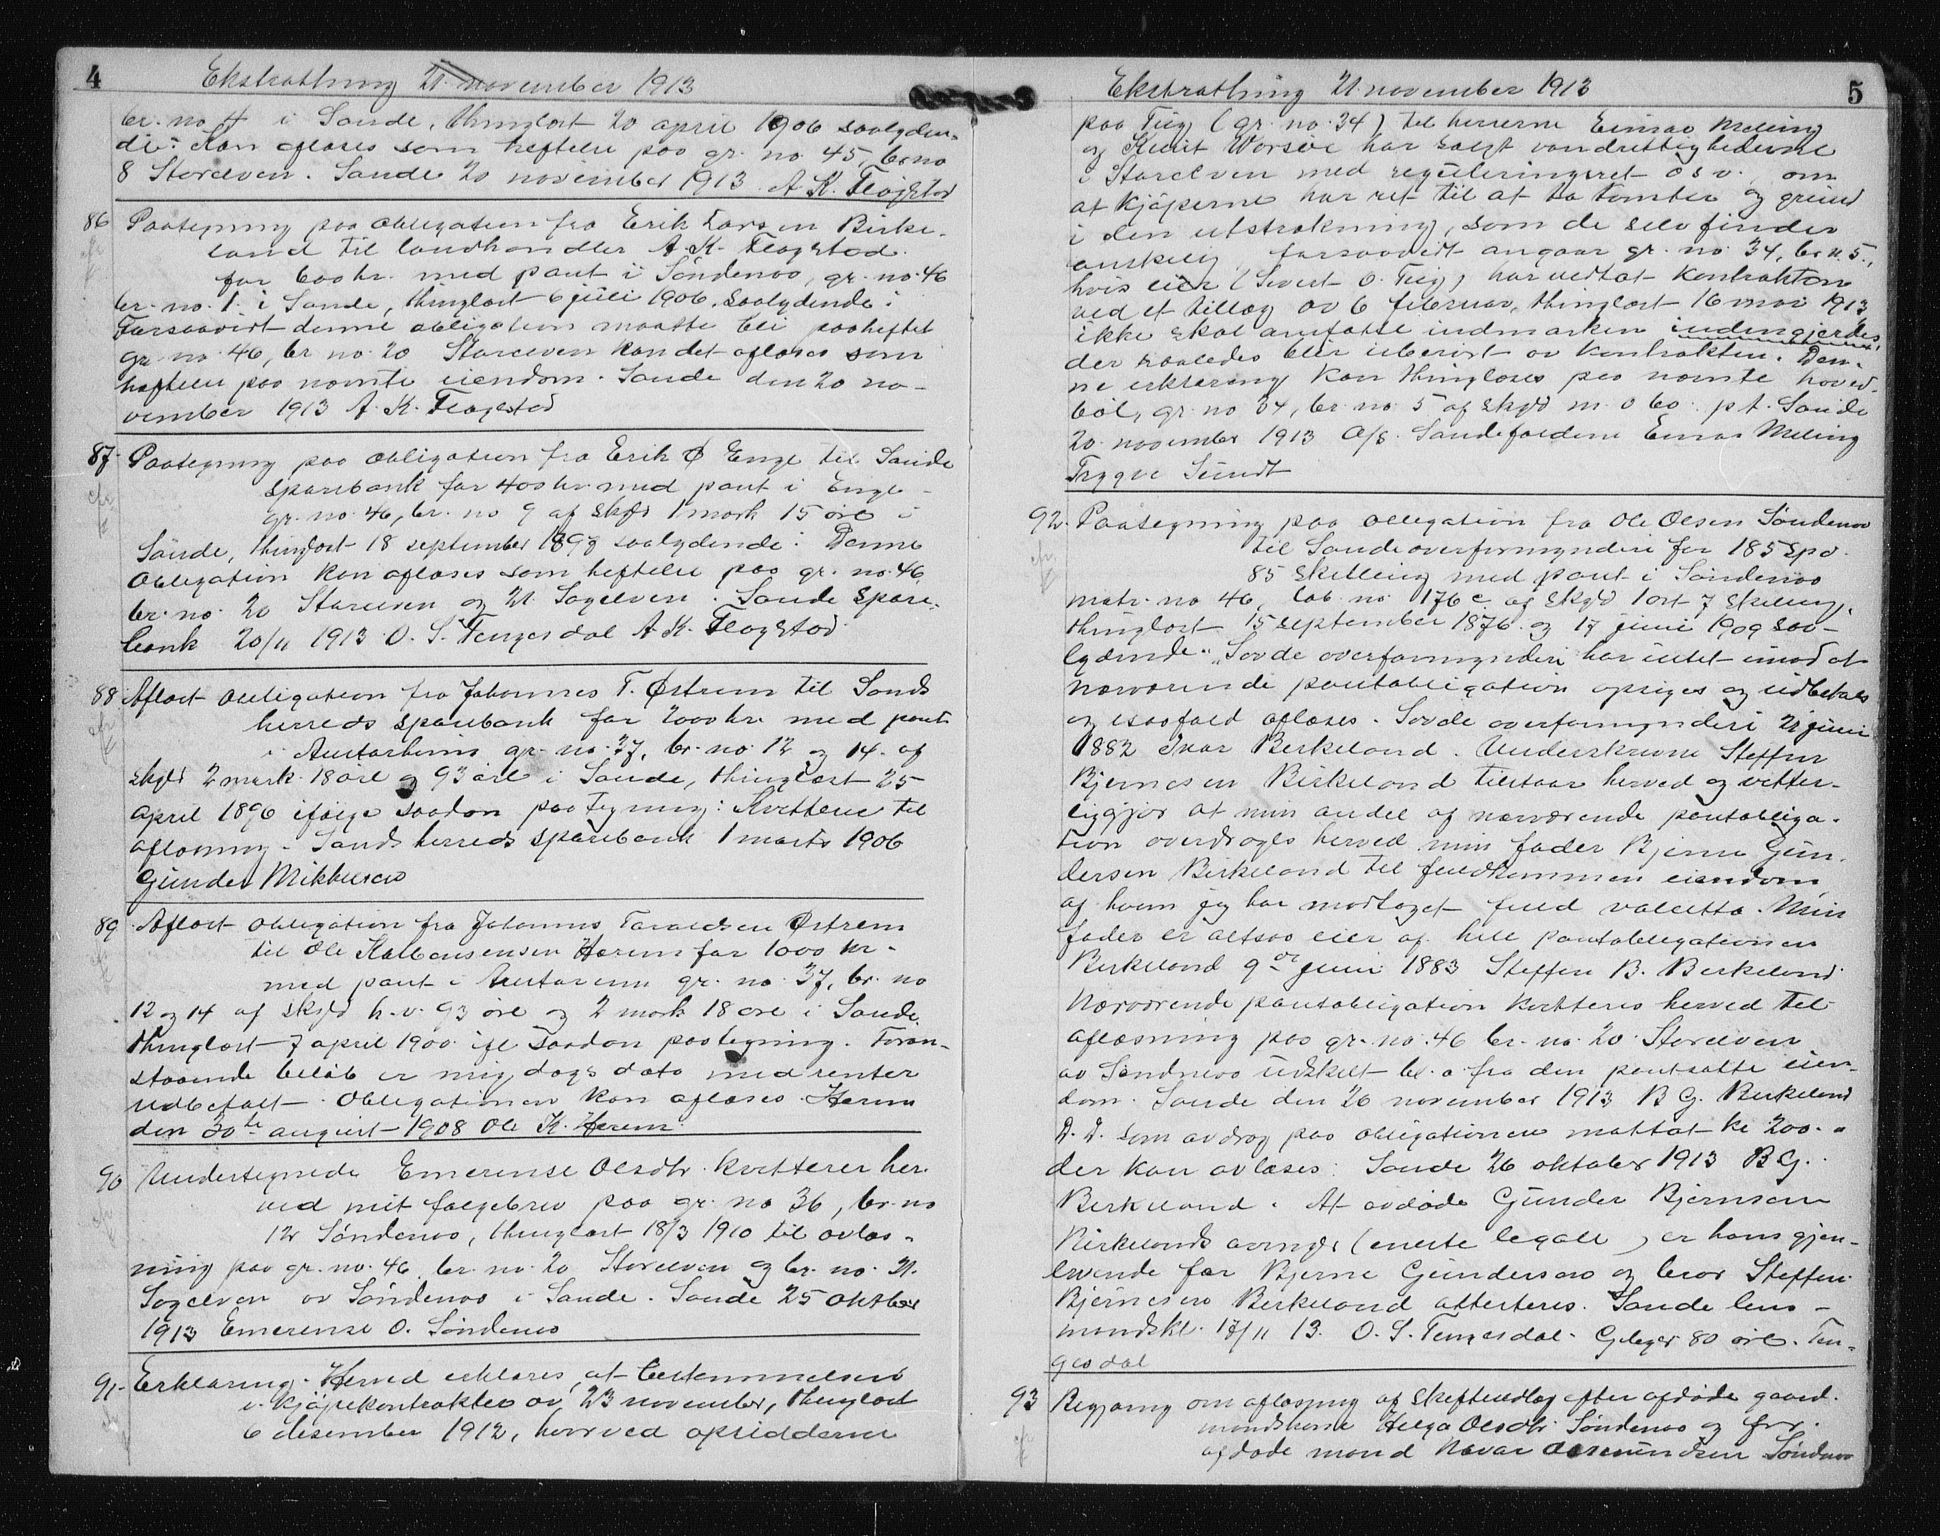 4
Ekstrathing 21. november 1913
br. no 4 i Sande, thinglæst 20 april 1906 saalyden-
de: Kan aflæses som heftelse paa gr. no. 45, br. no
8 Storelven. Sande 20 november 1913. A. K. Flagstad
86 Paategning paa obligation fra Erik Larsen Birke-
land til landhandler A. K. Flagstad
for 600 kr. med pant i Søndenaa, gr. no. 46
br. no. 1. i Sande, thinglæst 6 juli 1906, saalydende:
Forsaavidt denne obligation maatte bli paaheftet
gr. no. 46, br. no. 20 Storelven kan det aflæses som
heftelse paa nævnte eiendom. Sande den 20 no-
vember 1913 A. K. Flagstad
87. Paategning paa obligation fra Erik Ø Enge til Sande
sparebank for 400 kr. med pant i Enge
gr. no. 46, br. no 9 af skyld 1 mark 15 øre i
Sande, thinglæst 18 september 1898 saalydende: Denne
obligation kan aflæses som heftelse paa gr. no. 46
br. no. 20 Storelven og 21 Sagelven. Sande spare-
bank 20/11 1913 O. S. Tengesdal A. K. Flagstad
88 Aflæst obligation fra Johannes T. Østrem til Sands
herreds sparebank for 2000 kr. med pant
i Austarheim gr. no. 37, br. no. 12 og 14. af
skyld 2 mark 18 øre og 93 øre i Sande, thinglæst 25
april 1896 ifølge saadan paategning: Kvitteres til
aflæsning. Sands herreds sparebank 1 marts 1906
Gunder Mikkelsen
89 Aflæst obligation fra Johannes Taraldsen Østrem
til Ole Kolbensensen Herem for 1000 kr.
med pant i Austareim gr. no. 37, br. no
12 og 14 af skyld h. v. 93 øre og 2 mark 18 øre i Sande,
thinglæst 7 april 1900 ifl. saadan paategning. Foran-
staaende beløb er mig dags dato med renter
udbetalt. Obligationen kan aflæses. Herem
den 30te august 1908 Ole K. Herem
90 Undertegnede Emerense Olsdtr. kvitterer her-
ved mit følgebrev paa gr. no 36, br. no
12 Søndenaa, thinglæst 18/3 1910 til avlæs-
ning paa gr. no. 46 br. no. 20 Storelven og br. no. 21.
Sagelven av Søndenaa i Sande. Sande 25 oktber
1913 Emerense O. Søndenaa
91. Erklæring. Herved erklæres, at bestemmelsen
i kjøpekontrakten av 23 november, thinglæst
6 desember 1912, hvorved opsidderne
5
Ekstrathing 21 november 1913
paa Tuig (gr. no. 34) til herrerne Einar Meling
og Knut Worsøe har solgt vandrettighederne
i Storelven med reguleringsret osv., om
at kjøperne har ret til at ta tomter og grund
i den utstrækning, som de selv finder
ønskelig, forsaavidt angaar gr. no. 34, br. n. 5.,
hvis eier (Sivert O. Tuig) har vedtat kontrakten
ved et tillæg av 6 februar, thinglæst 16 mai 1913
ikke skal omfatte indmarken indengjerdes,
der saaledes blir uberørt av kontrakten. Den-
ne erklæring kan thinglæses paa nævnte hoved-
bøl, gr. no 34, br. no. 5 af skyld m. 0 60. p. t. Sande
20. november 1913 A/S. Sandefaldene Einar Meling
Trygve Sundt
92. Paategning paa obligation fra Ole Olsen Søndenaa
til Sandeoverformynderi for 185 spd.
85 skilling med pant i Søndenaa
matr. no 46, løb. no. 176 c. af skyld 1 ort 7 skilling,
thinglæst 15 september 1876 og 17 juni 1909 saa-
lydende: "Sovde overformynderi har intet imod at
nærværende pantobligation opsiges og udbetales
og isaafald aflæses. Sovde overformynderi 21 juni
1882 Ivar Birkeland. Underskrevne Steffen
Bjernesen Birkeland tilstaar herved og vitter-
liggjør at min andel af nærværende pantobliga-
tion overdrages herved min fader Bjerne Gun-
dersen Birkeland til fuldkommen eiendom
af hvem jeg har modtaget fuld valuta. Min
fader er altsaa eier af hele pantobligationen
Birkeland 9de juni 1883 Steffen B. Birkeland
Nærværende pantobligation kvitteres herved til
aflæsning paa gr. no. 46 br. no. 20 Storelven
av Søndenaa udskilt bl. a fra den pantsatte eien-
dom. Sande den 26 november 1913 B G. Birkeland
D. D. som avdrag paa obligationen mottat kr 200.-
der kan avlæses: Sande 26 oktober 1913 B G.
Birkeland. At avdøde Gunder Bjernsen
Birkelands arving (eneste legale) er hans gjen-
levende far Bjerne Gundersen og bror Steffen
Bjernesen Birkeland attesteres. Sande lens-
mandskt. 17/11 13. O. S. Tengesdal. Gebyr 80 øre. Ten-
gesdal
93 Begjæring om aflæsning af skifteudlæg efter afdøde gaard-
mandskone Helga Olsdtr Søndenaa og for
afdøde mand Navar Aasmundsen Søndenaa